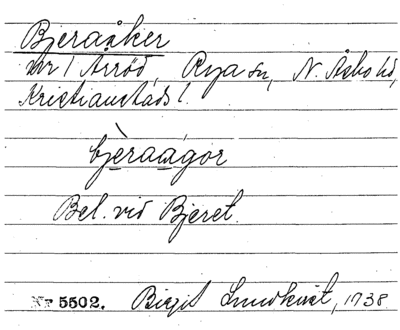 Bjeraåker
nr 1 Årröd, Rya sn, N. Åsbo hd,
Kristianstads l.
bjèraågor
Bel. vid Bjeret.
Nr 5502. Birgit Lundkvist, 1938